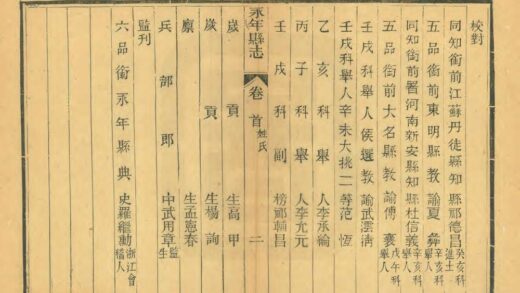 校對
同知銜前江蘇丹徒縣知縣郦德昌癸亥科進士
五品銜前東明縣教諭夏彝辛亥科舉人
同知銜前署河南新安縣知縣杜信義辛亥科舉人
五品銜前大名縣教諭傅襄戊午科舉人
壬戌科舉人候選教諭武雲淸
壬戌科舉人辛未大挑二等范恆
乙亥科舉人李承綸
丙子科舉人李允元
壬戌科副榜郦輔昌
永年縣志 卷首 姓氏 二
歲貢生高甲
歲貢生楊詢
廩生孟憲春
兵部郎中武用章監生
監刊
六品銜永年縣典史羅繼勳浙江會稽人